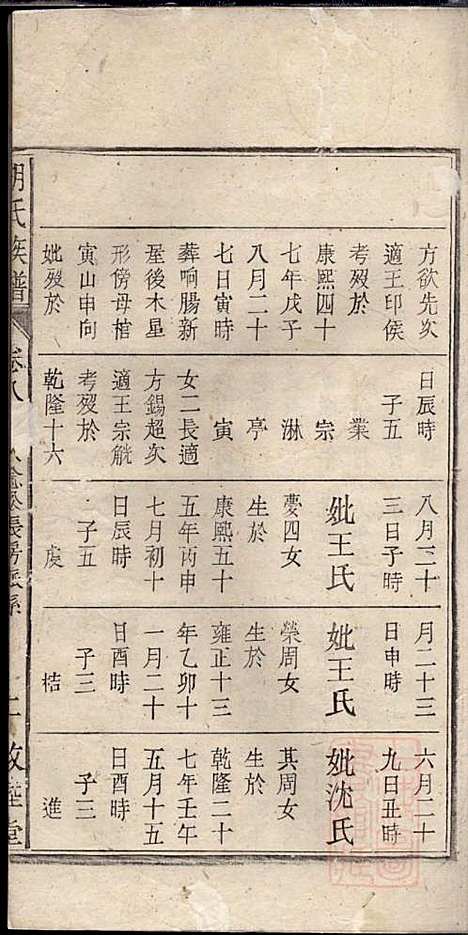 方欲先次
適王印侯
考歿於
康熙四十
七年戊子
八月二十
七日寅時
葬响腸新
屋後木星
形傍母棺
寅山申向
妣歿於
日辰時
子五
業
宗
淋
亭
寅
女二長適
方錫超次
適王宗觥
考歿於
乾隆十六
八月二十
三日子時
妣王氏
慶四女
生於
康熙五十
五年丙申
七月初十
日辰時
子五
虔
月二十三
日申時
妣王氏
榮周女
生於
雍正十三
年乙卯十
一月二十
日酉時
子三
桔
六月二十
九日丑時
妣沈氏
其周女
生於
乾隆二十
七年壬午
五月十五
日酉時
子三
進
胡氏族譜
卷八
長房世系
敦睦堂